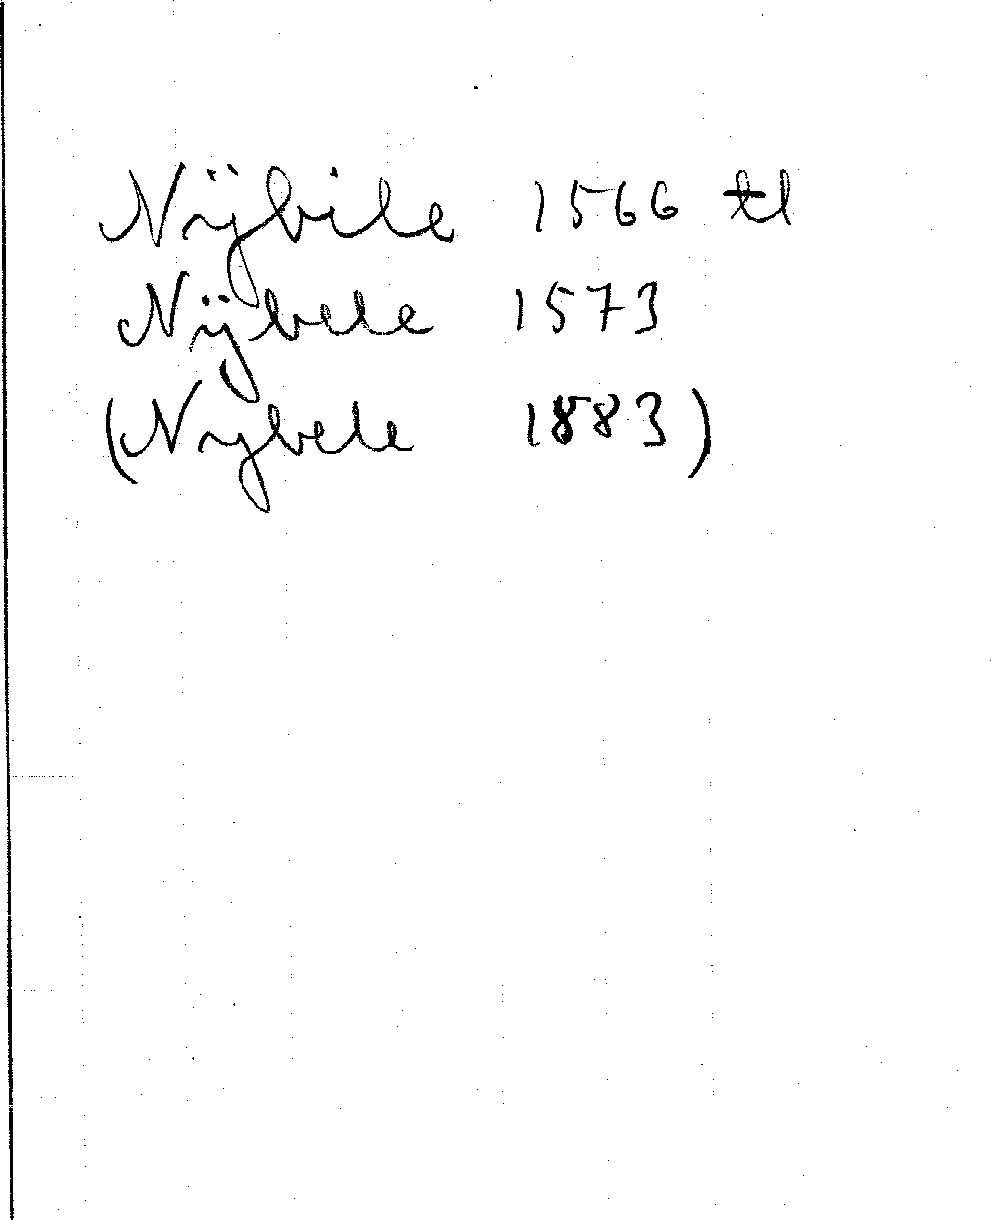 Nÿbile 1566 tl
Nÿbele 1573
(Nybele 1883)